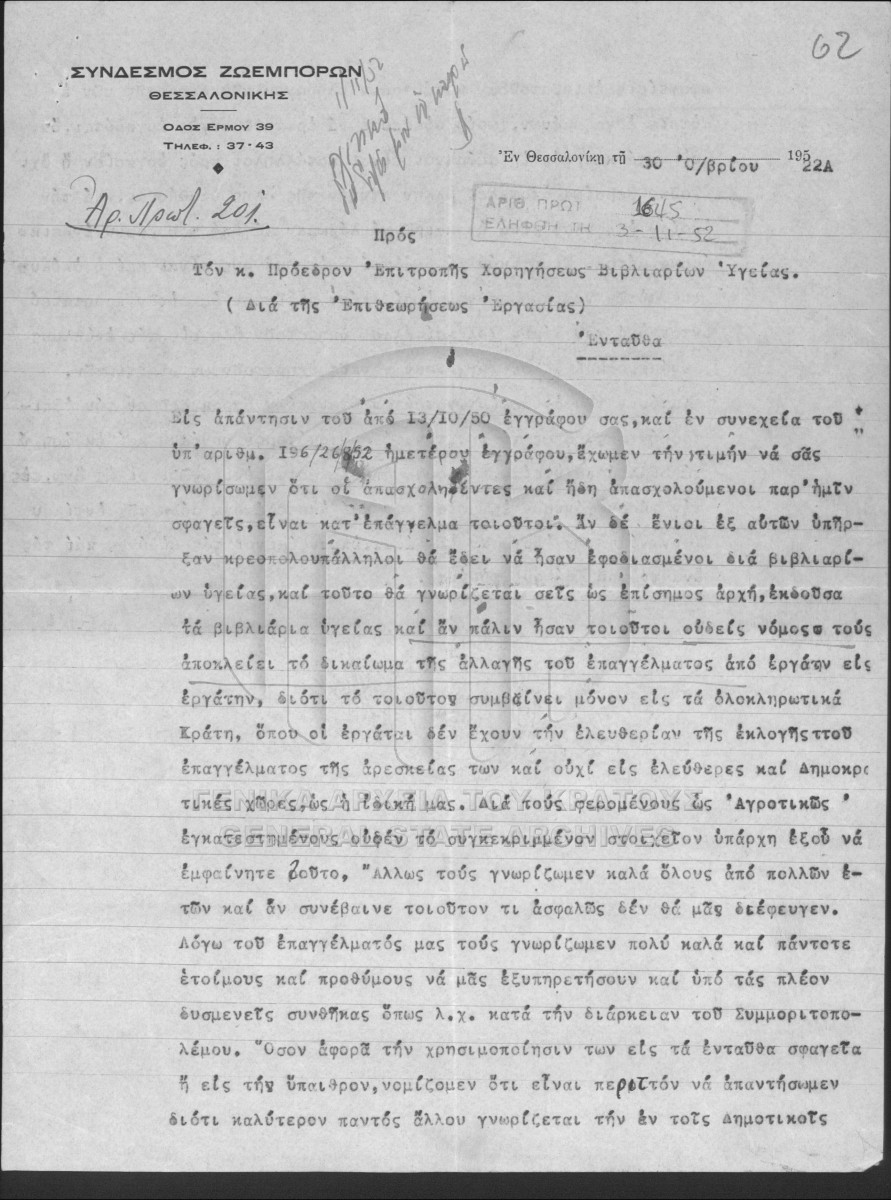 62
ΣΥΝΔΕΣΜΟΣ ΖΩΕΜΠΟΡΩΝ
ΘΕΣΣΑΛΟΝΙΚΗΣ
ΟΔΟΣ ΕΡΜΟΥ 39
ΤΗΛΕΦ.: 37-43
1/11/52
Ἐν Θεσσαλονίκῃ τῇ 30 Ὀ/βρίου 195 22Α
Αρ. Πρωτ. 201.
ΑΡΙΘ. ΠΡΩΤ 1645
ΕΛΗΦΘΗ ΤΗ 3-11-52
Πρός
Τόν κ. Πρόεδρον Ἐπιτροπῆς Χορηγήσεως Βιβλιαρίων Ὑγείας.
( Διά τῆς Ἐπιθεωρήσεως Ἐργασίας)
Ἐνταῦθα
Εἰς ἀπάντησιν τοῦ ἀπό 13/10/50 ἐγγράφου σας,καί ἐν συνεχεία τοῦ
ὑπ'ἀριθμ. 196/ ἡμετέρου ἐγγράφου,ἔχωμεν τήν τιμήν νά σᾶς
γνωρίσωμεν ὅτι οἱ ἀπασχοληθέντες καί ἤδη ἀπασχολούμενοι παρ'ἡμῖν
σφαγεῖς,εἶναι κατ'ἐπάγγελμα τοιοῦτοι. Ἄν δέ ἔνιοι ἐξ αὐτῶν ὑπῆρ-
ξαν κρεοπολουπάλληλοι θά ἔδει νά ἦσαν ἐφοδιασμένοι διά βιβλιαρί-
ων ὑγείας,καί τοῦτο θά γνωρίζεται σεῖς ὡς ἐπίσημος ἀρχή,ἐκδοῦσα
τά βιβλιάρια ὑγείας καί ἄν πάλιν ἦσαν τοιοῦτοι οὐδείς νόμος τούς
ἀποκλείει τό δικαίωμα τῆς ἀλλαγῆς τοῦ ἐπαγγέλματος ἀπό ἐργάτην εἰς
ἐργάτην, διότι τό τοιοῦτον συμβαίνει μόνον εἰς τά ὁλοκληρωτικά
Κράτη, ὅπου οἱ ἐργάται δέν ἔχουν τήν ἐλευθερίαν τῆς ἐκλογῆς ττοῦ
ἐπαγγέλματος τῆς ἀρεσκείας των καί οὐχί εἰς ἐλεύθερες καί Δημοκρα
τικές χῶρες,ὡς ἡ ἰδική μας. Διά τούς φερομένους ὡς Ἀγροτικῶς
ἐγκατεστημένους οὐδέν τό συγκεκριμμένον στοιχεῖον ὑπάρχη ἐξοῦ νά
ἐμφαίνητε τοῦτο, Ἄλλως τούς γνωρίζωμεν καλά ὅλους ἀπό πολλῶν ἐ-
τῶν καί ἄν συνέβαινε τοιοῦτον τι ἀσφαλῶς δέν θά μᾶς διέφευγεν.
Λόγω τοῦ ἐπαγγέλματός μας τούς γνωρίζωμεν πολύ καλά καί πάντοτε
ἑτοίμους καί προθύμους νά μᾶς ἐξυπηρετήσουν καί ὑπό τάς πλέον
δυσμενεῖς συνθῆκας ὅπως λ.χ. κατά τήν διάρκειαν τοῦ Συμμοριτοπο-
λέμου. Ὅσον ἀφορᾶ τήν χρησιμοποίησιν των εἰς τά ἐνταῦθα σφαγεῖα
ἤ εἰς τήν ὕπαιθρον,νομίζομεν ὅτι εἶναι περιττόν νά ἀπαντήσωμεν
διότι καλύτερον παντός ἄλλου γνωρίζεται τήν ἐν τοῖς Δημοτικοῖς
ΓΕΝΙΚΑ ΑΡΧΕΙΑ ΤΟΥ ΚΡΑΤΟΥΣ
GENERAL STATE ARCHIVES